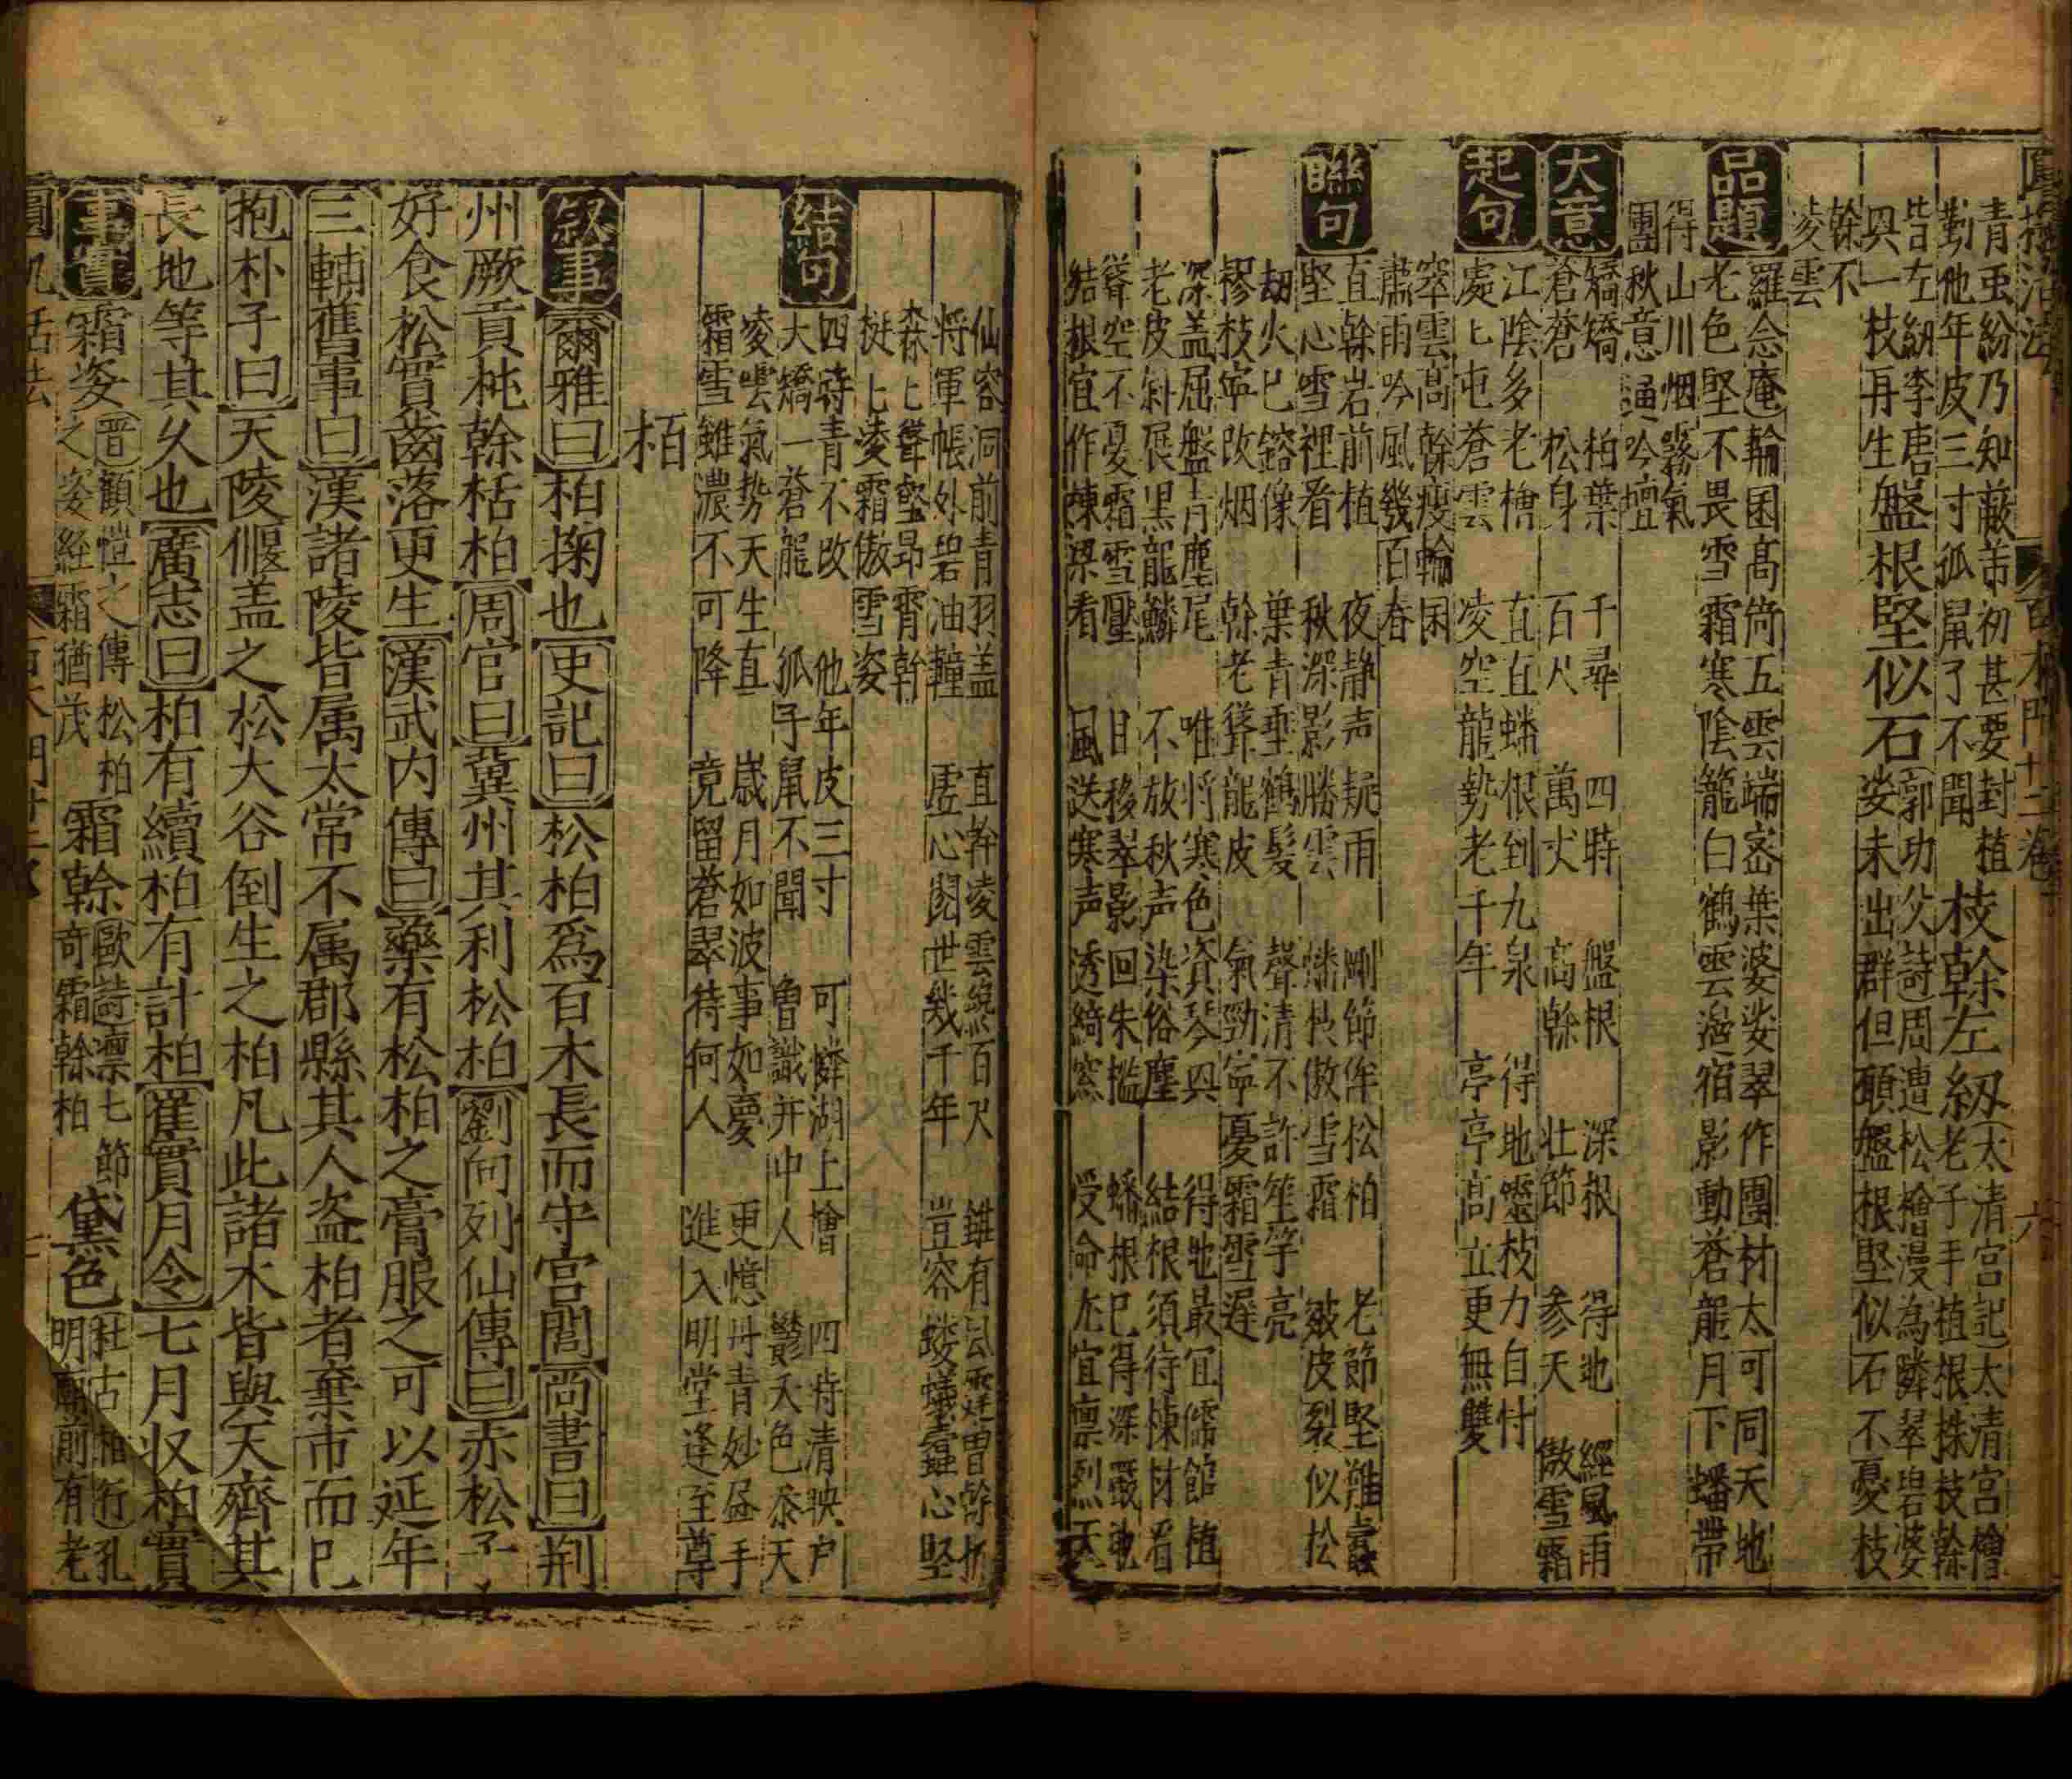 百木門十二卷 六
青玉紛乃知蔽芾初甚要封植 枝幹左紐 太清宮記 太清宮檜
勤他年皮三寸孤鼠了不聞 老子手植根株枝幹
皆左紐李唐 郭功父詩 周遭松檜漫為隣翠碧婆
與一枝再生 盤根堅似石 娑未出群但願盤根堅似石不憂枝
幹不
凌雲
品題 羅念庵 輪囷高倚五雲端密葉婆娑翠作團材太可同天地
老色堅不畏雪霜寒陰籠白鶴雲邊宿影動蒼龍月下蟠帶
得山川烟霧氣
團秋意逼吟壇
大意 矯矯 柏葉 千尋 四時 盤根 深根 得地 經風雨
蒼蒼 松身 百尺 萬丈 高幹 壮節 參天 傲雪霜
起句 江陰多老檜 直直蟠根到九泉 得地靈枝力自付
處處屯蒼雲 凌空龍勢老千年 亭亭高立更無雙
窣雲高幹瘦輪囷
肅雨吟風幾百春
聯句 直幹岩前植 夜静声疑雨 剛節侔松柏 老節堅難蠹
堅心雪裡看 秋深影勝雲 蟠枝傲雪霜 皴皮裂似松
劫火已鎔像 葉青垂鶴髮 聲清不許笙竽亮
樛枝寧改烟 幹老聳龍皮 氣勁寧憂霜雪遲
深盖屈盤青麈尾 唯将寒色資琴與 得地最宜儒館植
老皮斜展黒龍鱗 不放秋声染俗塵 結根須待棟材看
聳空不憂霜雪壓 日移翠影回朱檻 蟠根已得深嚴地
結根宜作棟梁看 風送寒声透綺窓 受命尤宜凛烈天
仙容洞前青羽盖 直幹凌雲繞百尺
将軍帳外碧油幢 虚心閲世幾千年 豈容螻蟻蠹心堅
森森聳壑昂霄幹
挺挺凌霜傲雪姿
結句 四時青不改 他年皮三寸 可憐湖上檜 四時清映户
大矯一蒼龍 孤子鼠不聞 曽識井中人 鬱天色參天
凌雲氣勢天生直 歳月如波事如夢 更憶丹青妙㽵手
霜雪雖濃不可降 竟留蒼翠待何人 進入明堂逢至尊
栢
叙事 爾雅曰 柏掬也 史記曰 松柏爲百木長而守宮閭 尚書曰 荆
州厥貢杶幹栝柏 周官曰 冀州其利松柏 劉向列仙傳曰 赤松子
好食松實齒落更生 漢武内傳曰 藥有松柏之膏服之可以延年
三輔舊事曰 漢諸陵皆属太常不属郡縣其人盗柏者棄市而已
抱朴子曰 天陵偃盖之松大谷倒生之柏凡此諸木皆與天齊其
長地等其久也 廣志曰 柏有續柏有計柏 崔實月令 七月収柏實
事實 霜姿 晋顧愷之傳 松柏 霜幹 歐詩 凛七節 黛色 杜古柏行 孔
之姿経霜猶茂 奇霜幹柏 明廟前有老